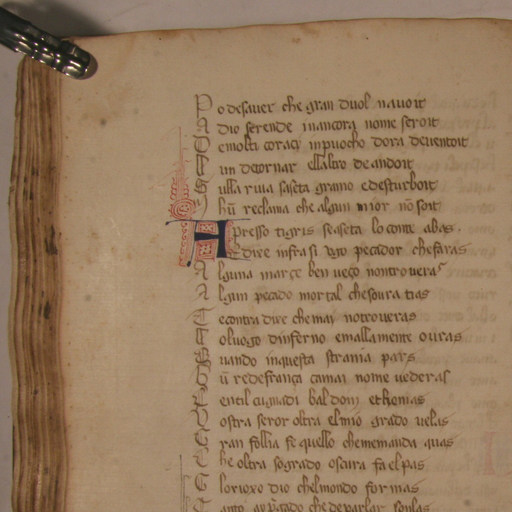 Po de sauer che gran duol nauoit
A dio serende m ancora nome seroit
De molti coraçi in puocho dora deuentoit
un de tornar ellaltro de andoit
Sulla riua saseta gramo e desturboit
hū reclama che algun mior nō soit
Apresso tigris se aseta lo conte abas.
E dire infra si ugo pecador che faras
Alguna março ben ueço non troueras
Algun pecado mortal che soura tias
E contra dire che mai no troueras
o luogo dinferno e mallamente ouras
Quando in questa strania pars
ū re de frança camai nome uederas
Gentil cugnadi baldoin e thomas
Vostra seror oltra el mio grado uelas
Gran follia fe quello che me manda quas
Che oltra so grado oscura fa el pas
Glorioxo dio chel mondo formas
che de parlar soulas